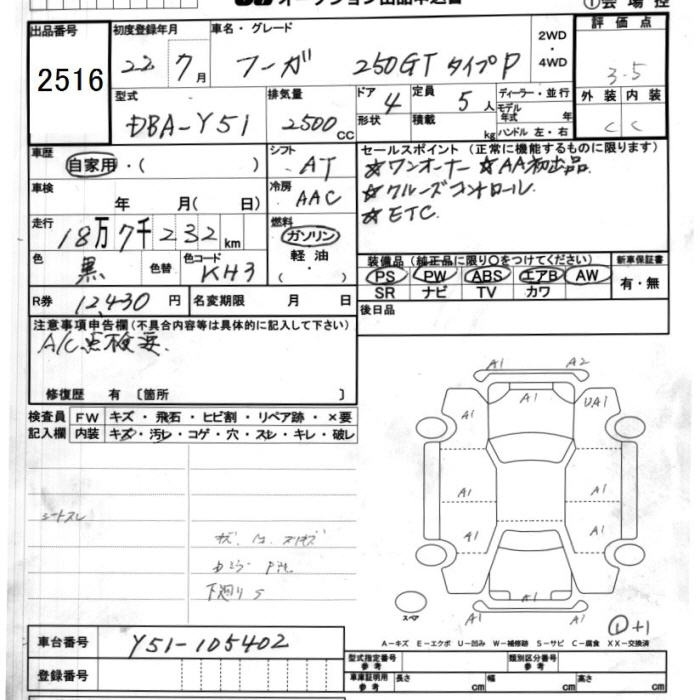 オークション出品申込書
①会場控
出品番号
2516
初度登録年月
22年 7月
車名・グレード
フーガ 250GT タイプP
2WD
・
4WD
評価点
3.5
型式
DBA-Y51
排気量
2500cc
ドア
4
形状
定員
5人
積載
kg
ディーラー・並行
モデル年式 年
ハンドル 左・右
外装 内装
C C
車歴
自家用・( )
シフト
AT
セールスポイント (正常に機能するものに限ります)
☆ワンオーナー ☆AA初出品
☆クルーズコントロール
☆ETC
車検
年 月( 日)
冷房
AAC
走行
18万7千232km
燃料
ガソリン
軽油
・( )
色
黒
色替
色コード
KH3
装備品(純正品に限り○をつけてください)
PS PW ABS エアB AW
SR ナビ TV カワ
新車保証書
有・無
R券
12,430円
名変期限 月 日
後日品
注意事項申告欄(不具合内容等は具体的に記入して下さい)
A/C点検要
修復歴 有〔箇所 〕
検査員記入欄
FW キズ・飛石・ヒビ割・リペア跡・×要
内装 キズ・汚レ・コゲ・穴・スレ・キレ・破レ
シートスレ
下廻りS
A1 A2
A1 A1 UA1
A1 A1
A1 A1
A1
A1
スペア
①+1
A-キズ E-エクボ U-凹み W-補修跡 S-サビ C-腐食 XX-交換済
車台番号
Y51-105402
登録番号
型式指定番号 参考
類別区分番号 参考
車庫証明用 参考
長さ cm 幅 cm 高さ cm